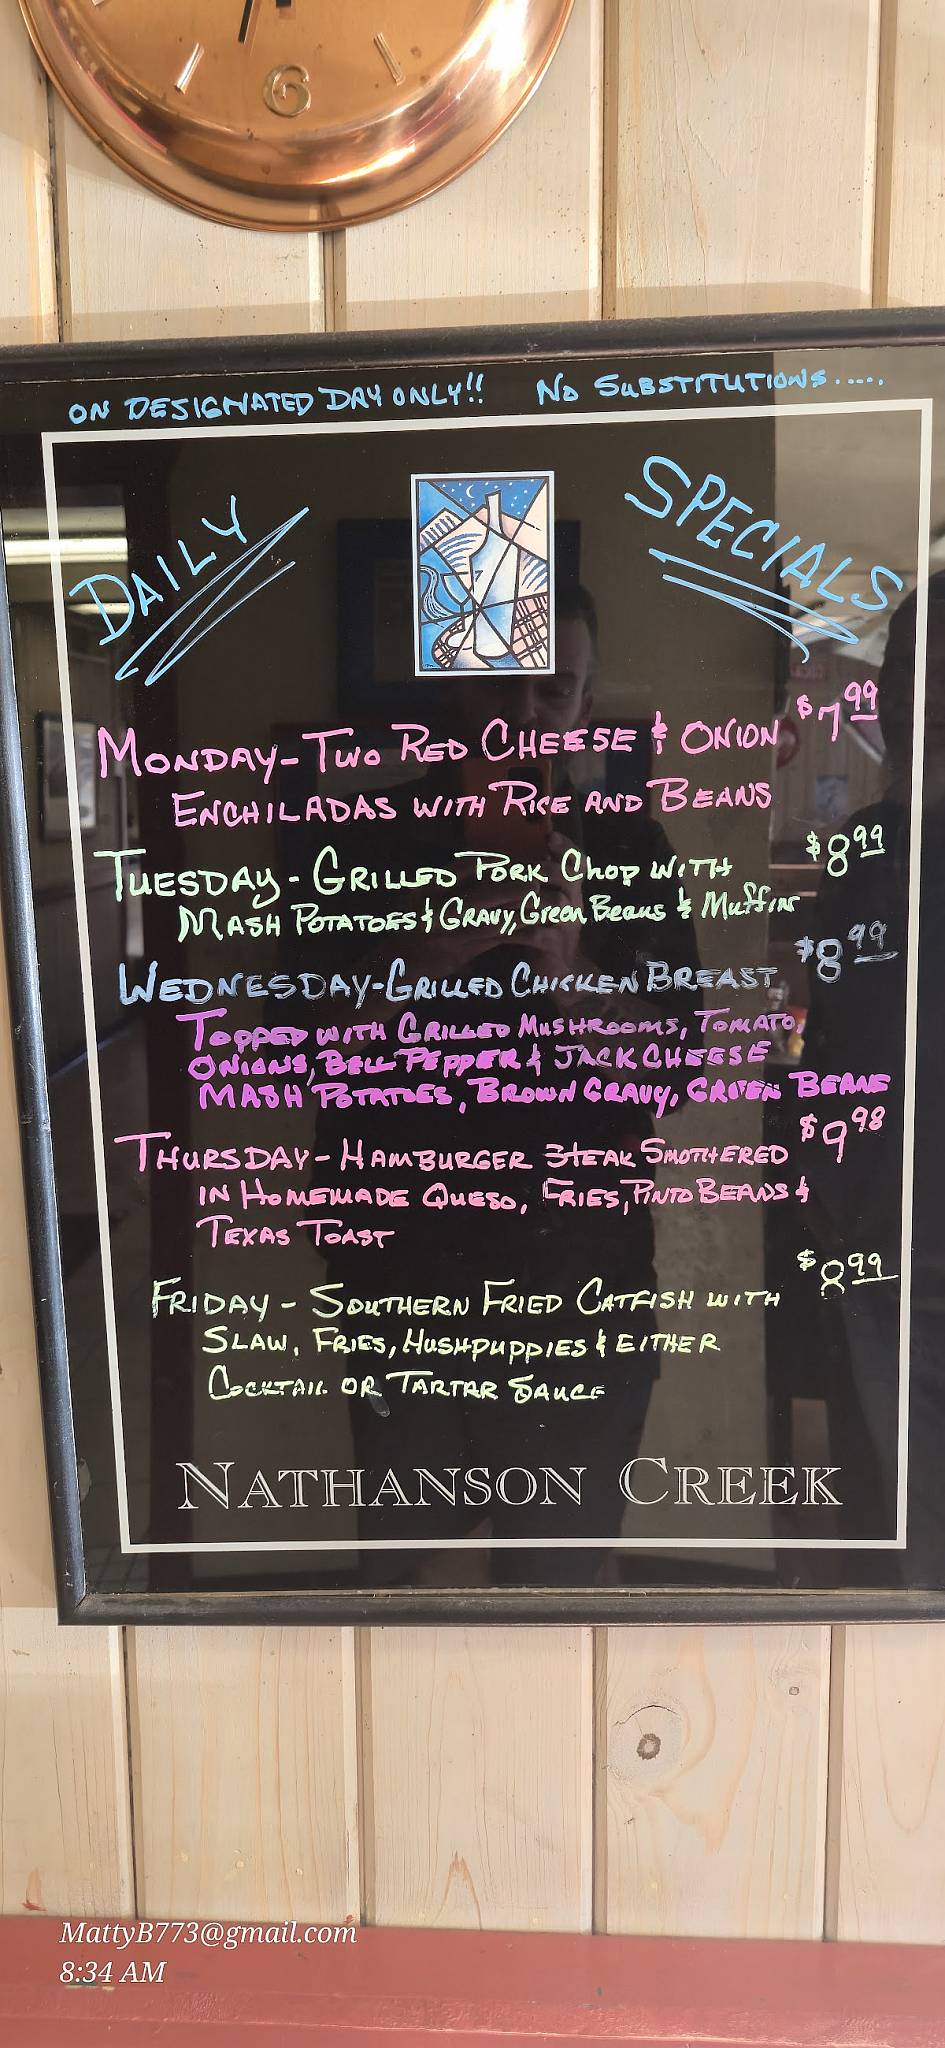 6
ON DESIGNATED DAY ONLY!! NO SUBSTITUTIONS.....
DAILY SPECIALS
MONDAY - TWO RED CHEESE & ONION $7.99
ENCHILADAS WITH RICE AND BEANS
TUESDAY - GRILLED PORK CHOP WITH $8.99
MASH POTATOES & GRAVY, Green Beans & Muffin
WEDNESDAY - GRILLED CHICKEN BREAST $8.99
TOPPED WITH GRILLED MUSHROOMS, TOMATO,
ONIONS, BELL PEPPER & JACK CHEESE
MASH POTATOES, BROWN GRAVY, GREEN BEANS
THURSDAY - HAMBURGER STEAK SMOTHERED $9.98
IN HOMEMADE QUESO, FRIES, PINTO BEANS &
TEXAS TOAST
FRIDAY - SOUTHERN FRIED CATFISH WITH $8.99
SLAW, FRIES, HUSHPUPPIES & EITHER
COCKTAIL OR TARTAR SAUCE
NATHANSON CREEK
MattyB773@gmail.com
8:34 AM